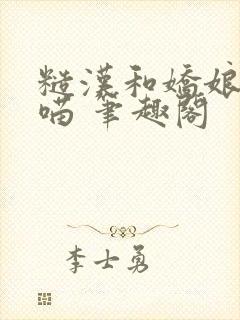 糙漢和嬌娘
喵 筆趣閣
李士勇